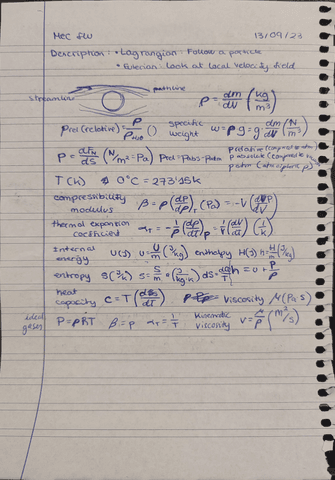 Mec flu 13/09/23
Description: • Lagrangian: Follow a particle
• Eulerian: Look at local velocity field
streamline pathline ρ = dm/dV (kg/m³)
ρrel (relative) = ρ/ρH₂O () specific weight w = ρg = g dm/dV (N/m³)
P = dFN/dS (N/m² = Pa) Prel = Pabs - Patm
T(K) 0°C = 273'15K
compressibility modulus β = ρ(dP/dρ)T (Pa) = -V(dP/dV)
thermal expantion coefficient αT = -1/ρ (dρ/dT)P = 1/V (dV/dT) (1/K)
Internal energy U(J) u = U/m (J/kg) enthalpy H(J) h = H/m (J/kg)
entropy S(J/K) s = S/m (J/kg·K) dS = dQ/T h = u + P/ρ
heat capacity c = T(dS/dT) viscosity μ(Pa·s)
ideal gases P = ρRT β = p αT = 1/T Kinematic viscosity ν = μ/ρ (m²/s)